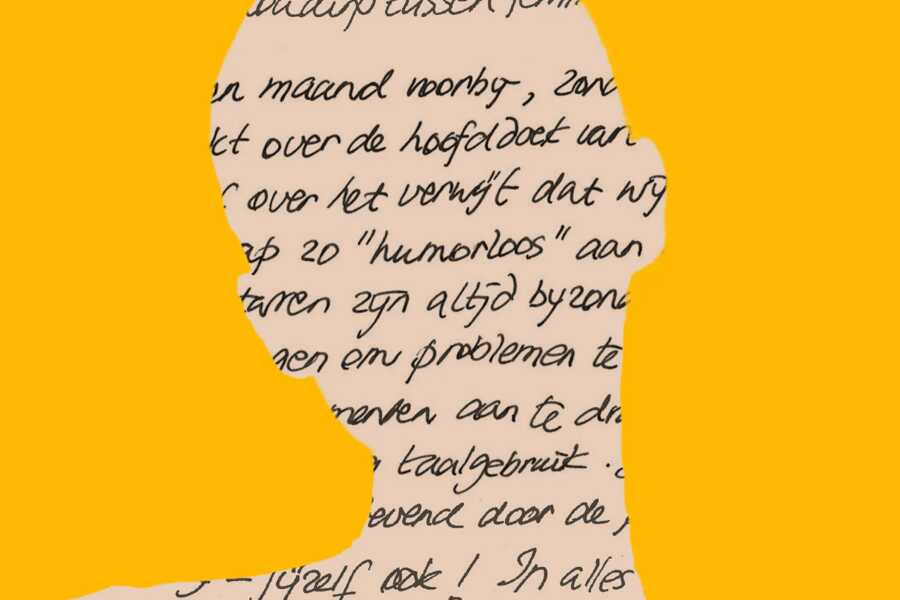 tussen
en maand voorby, zon
kt over de hoofddoek van
f over het verwijt dat wij
ap 20 "humorloos" aan
taren zijn altijd byzond
gen om problemen te
menten aan te dr
taalgebruik.
levend door de
- Jijzelf ook! In alles